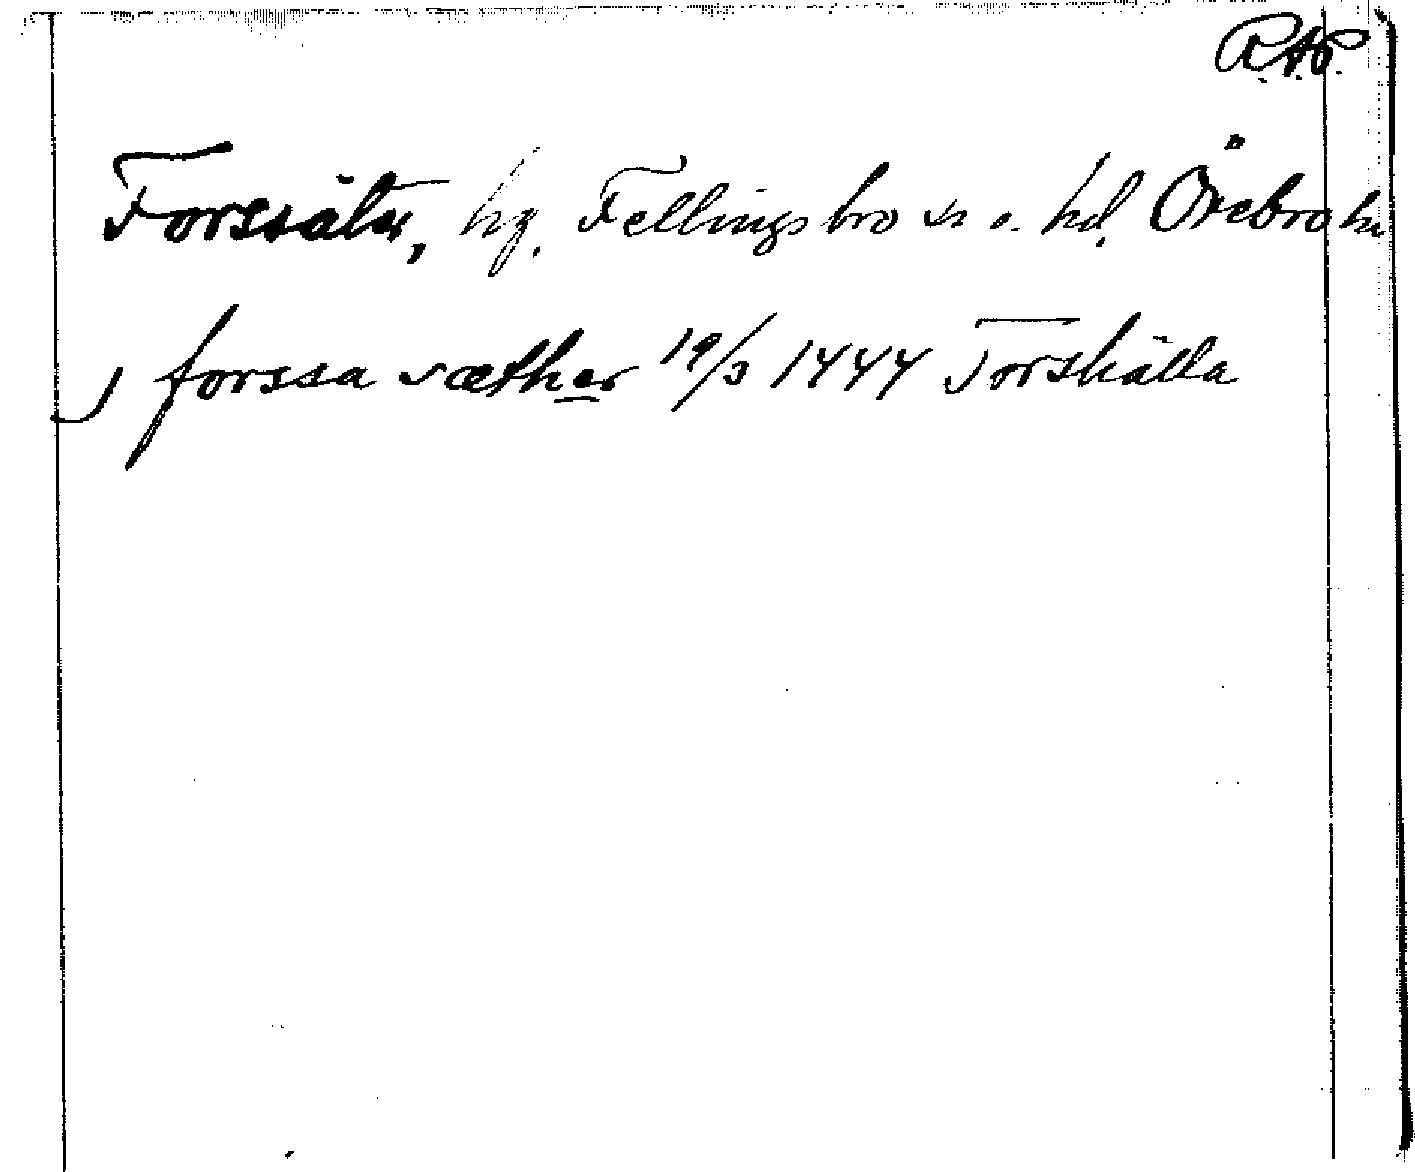 R.A.P.
Forssäter, hg. Fellingsbro sn o. hd. Örebro län
J forssa sæther 19/3 1444 Torshälla